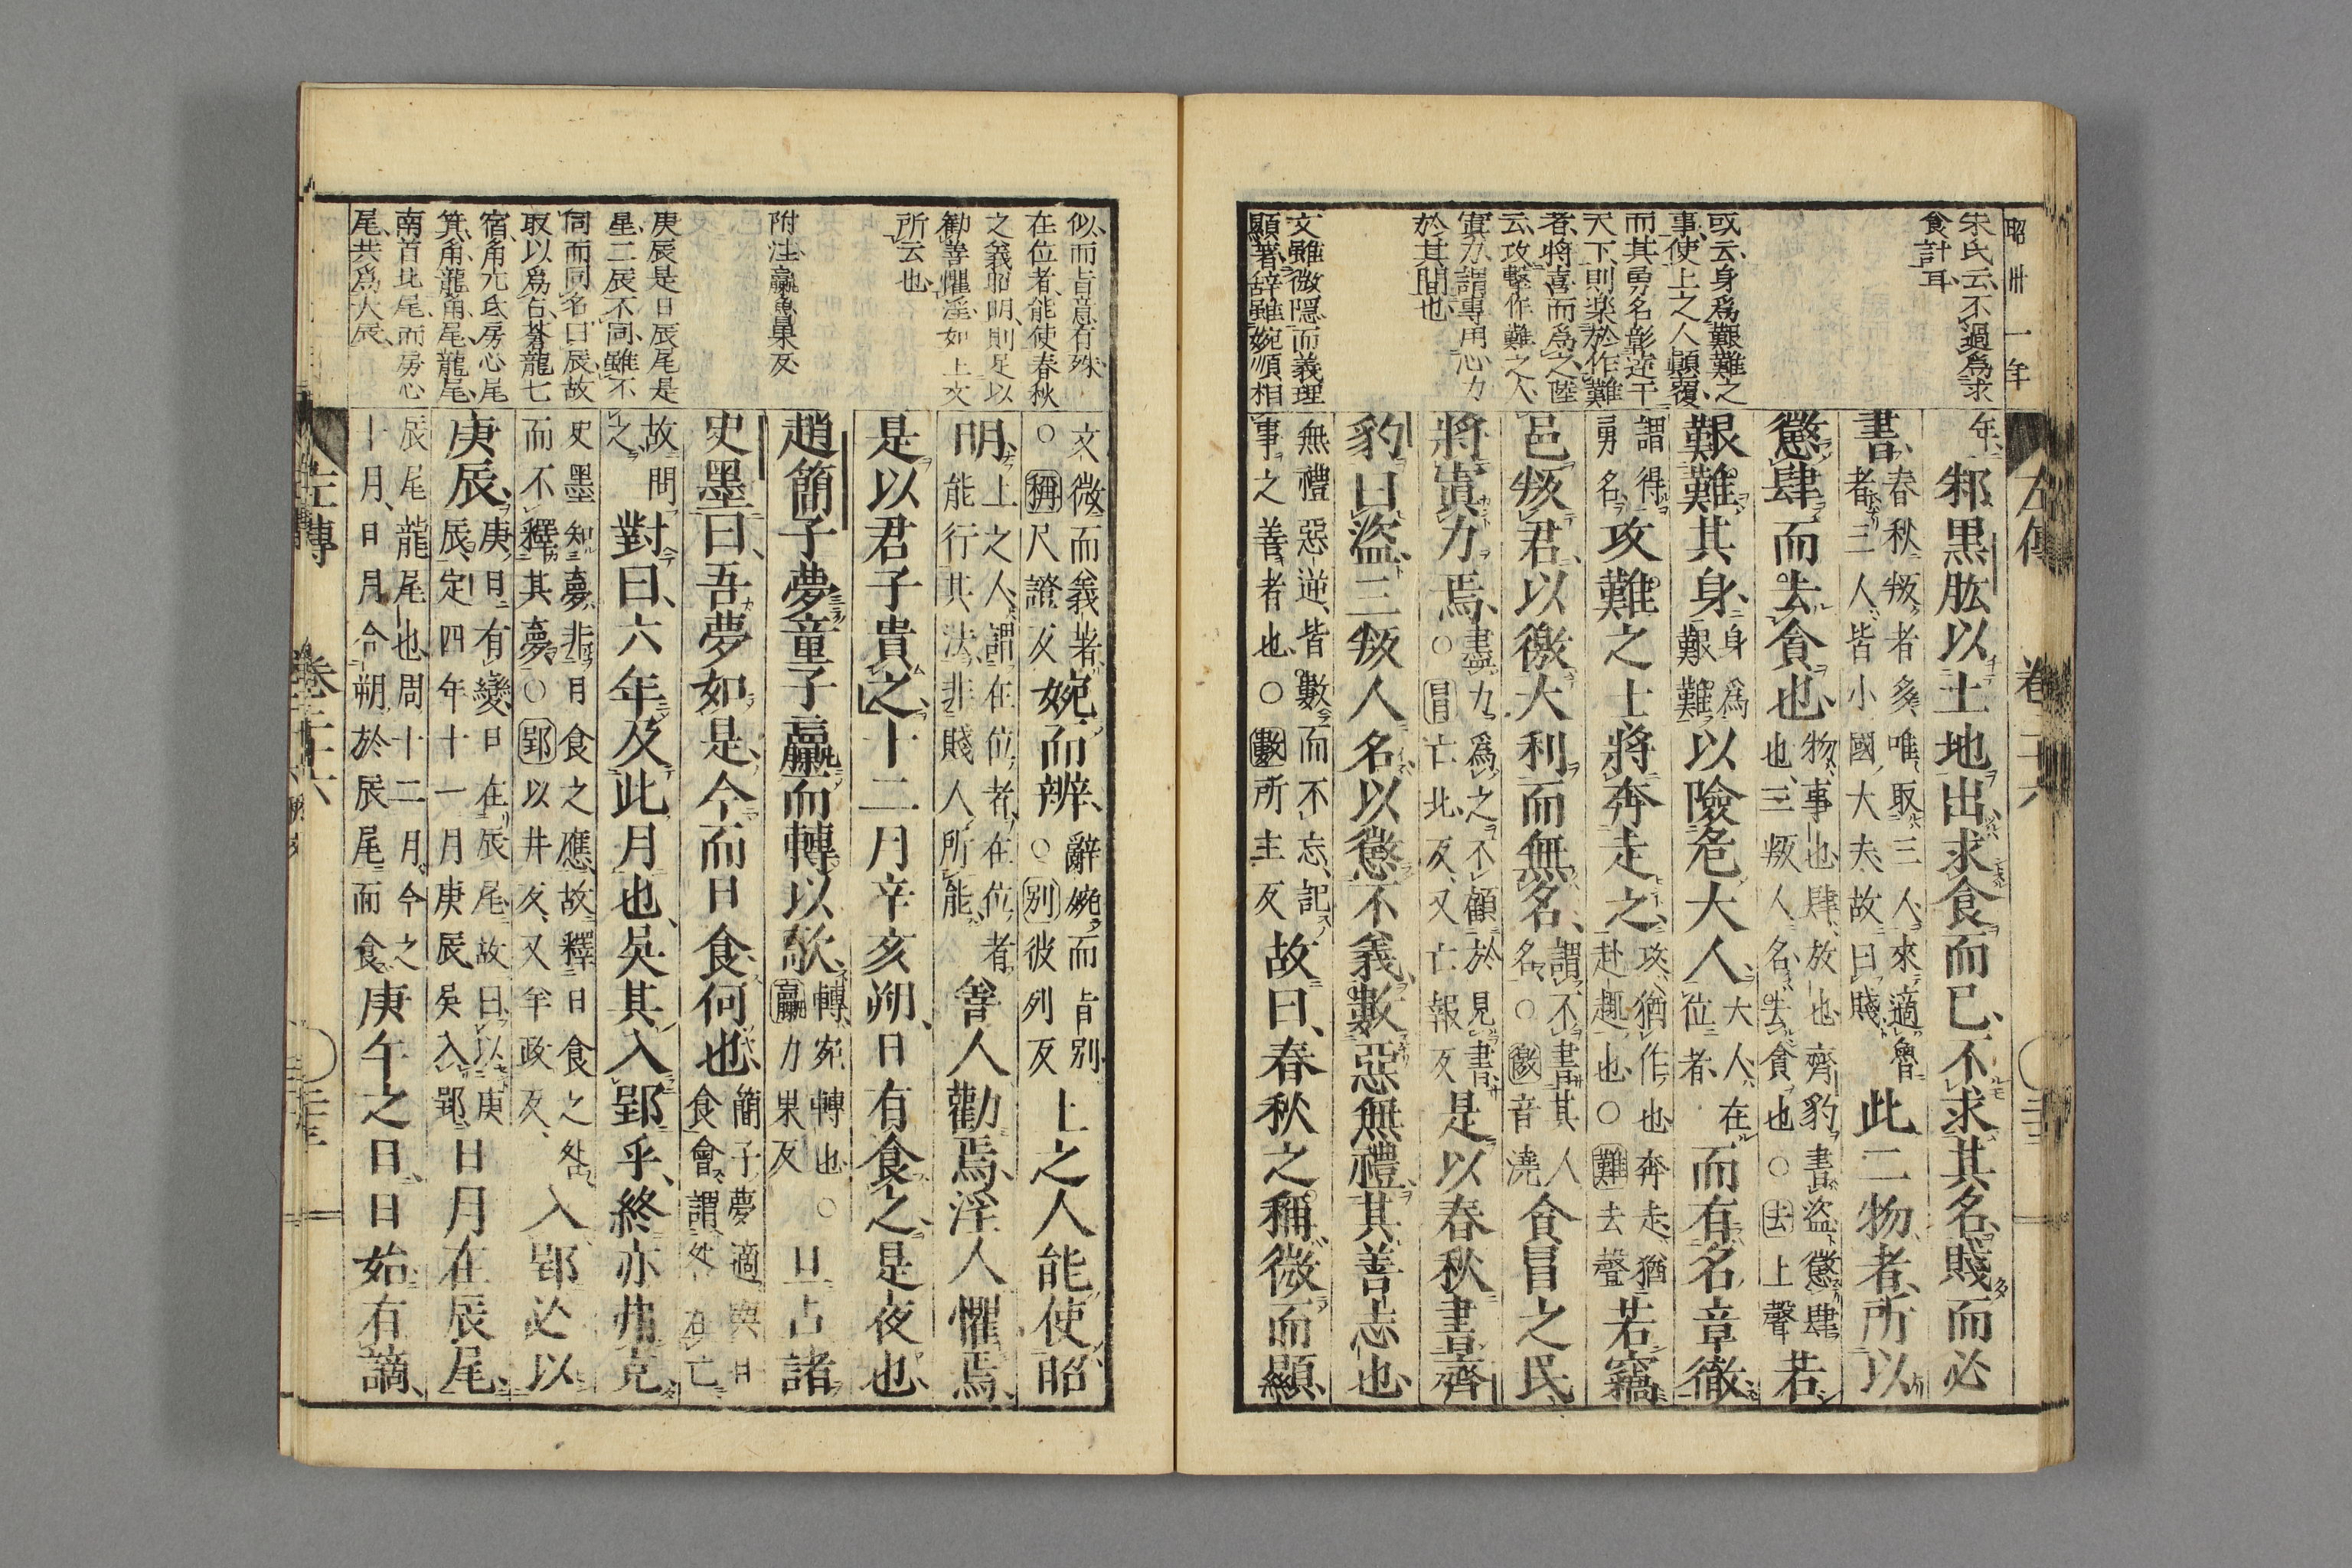 昭卅一年
左傳 卷二六
宋氏云不過爲求
食計耳
或云身爲艱難之
事使上之人顛覆
而其勇名彰逆于
天下則楽於作難
者將喜而爲之陸
云攻擊作難之人
寘力謂專用心力
於其間也
文雖微隱而義理
顯著辭雖婉順相
年邾黒肱以土地出求食而已不求其名賤而必
書春秋叛者多唯取三人來適魯
者三人皆小國大夫故曰賤此二物者所以
懲肆而去貪也物事也肆放也齊豹書盜懲肆
也三叛人名去貪也○去上聲若
艱難其身身爲
艱難以險危大人大人在
位者而有名章徹
謂得
勇名攻難之士將奔走之攻猶作也奔走猶
赴趣也○難去聲若竊
邑叛君以徼大利而無名謂不書其人
名○徼音澆貪冒之民
將寘力焉盡力爲之不顧於見書
○冒亡北反又亡報反是以春秋書齊
豹曰盜三叛人名以懲不義數惡無禮其善志也
無禮惡逆皆數而不忘記
事之善者也○數所主反故曰春秋之稱微而顯
似而旨意有殊
在位者能使春秋
之義昭明則足以
勸善懼淫如上文
所云也
附注羸魚果反
庚辰是日辰尾是
星二辰不同雖不
同而同名曰辰故
取以爲占蒼龍七
宿角亢氐房心尾
箕角龍角尾龍尾
南首北尾而房心
尾共爲大辰
文微而義著
○稱尺證反婉而辨辭婉而旨別
○別彼列反上之人能使昭
明上之人謂在位者在位者
能行其法非賤人所能善人勸焉淫人懼焉
是以君子貴之十二月辛亥朔日有食之是夜也
趙簡子夢童子羸而轉以歌轉宛轉也○
羸力果反旦占諸
史墨曰吾夢如是今而日食何也簡子夢適與日
食會謂咎在己
故問
之對曰六年及此月也吳其入郢乎終亦弗克
史墨知夢非日食之應故釋日食之咎
而不釋其夢○郢以井反又羊政反入郢必以
庚辰庚日有變日在辰尾故曰以庚
辰定四年十一月庚辰吳入郢日月在辰尾
辰尾龍尾也周十二月今之
十月日月合朔於辰尾而食庚午之日日始有謫
左傳 卷二十六